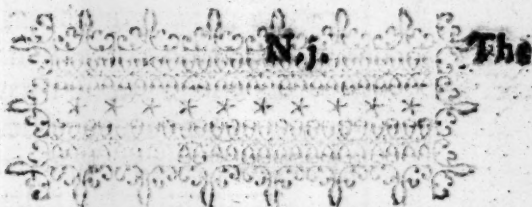 N.j. The